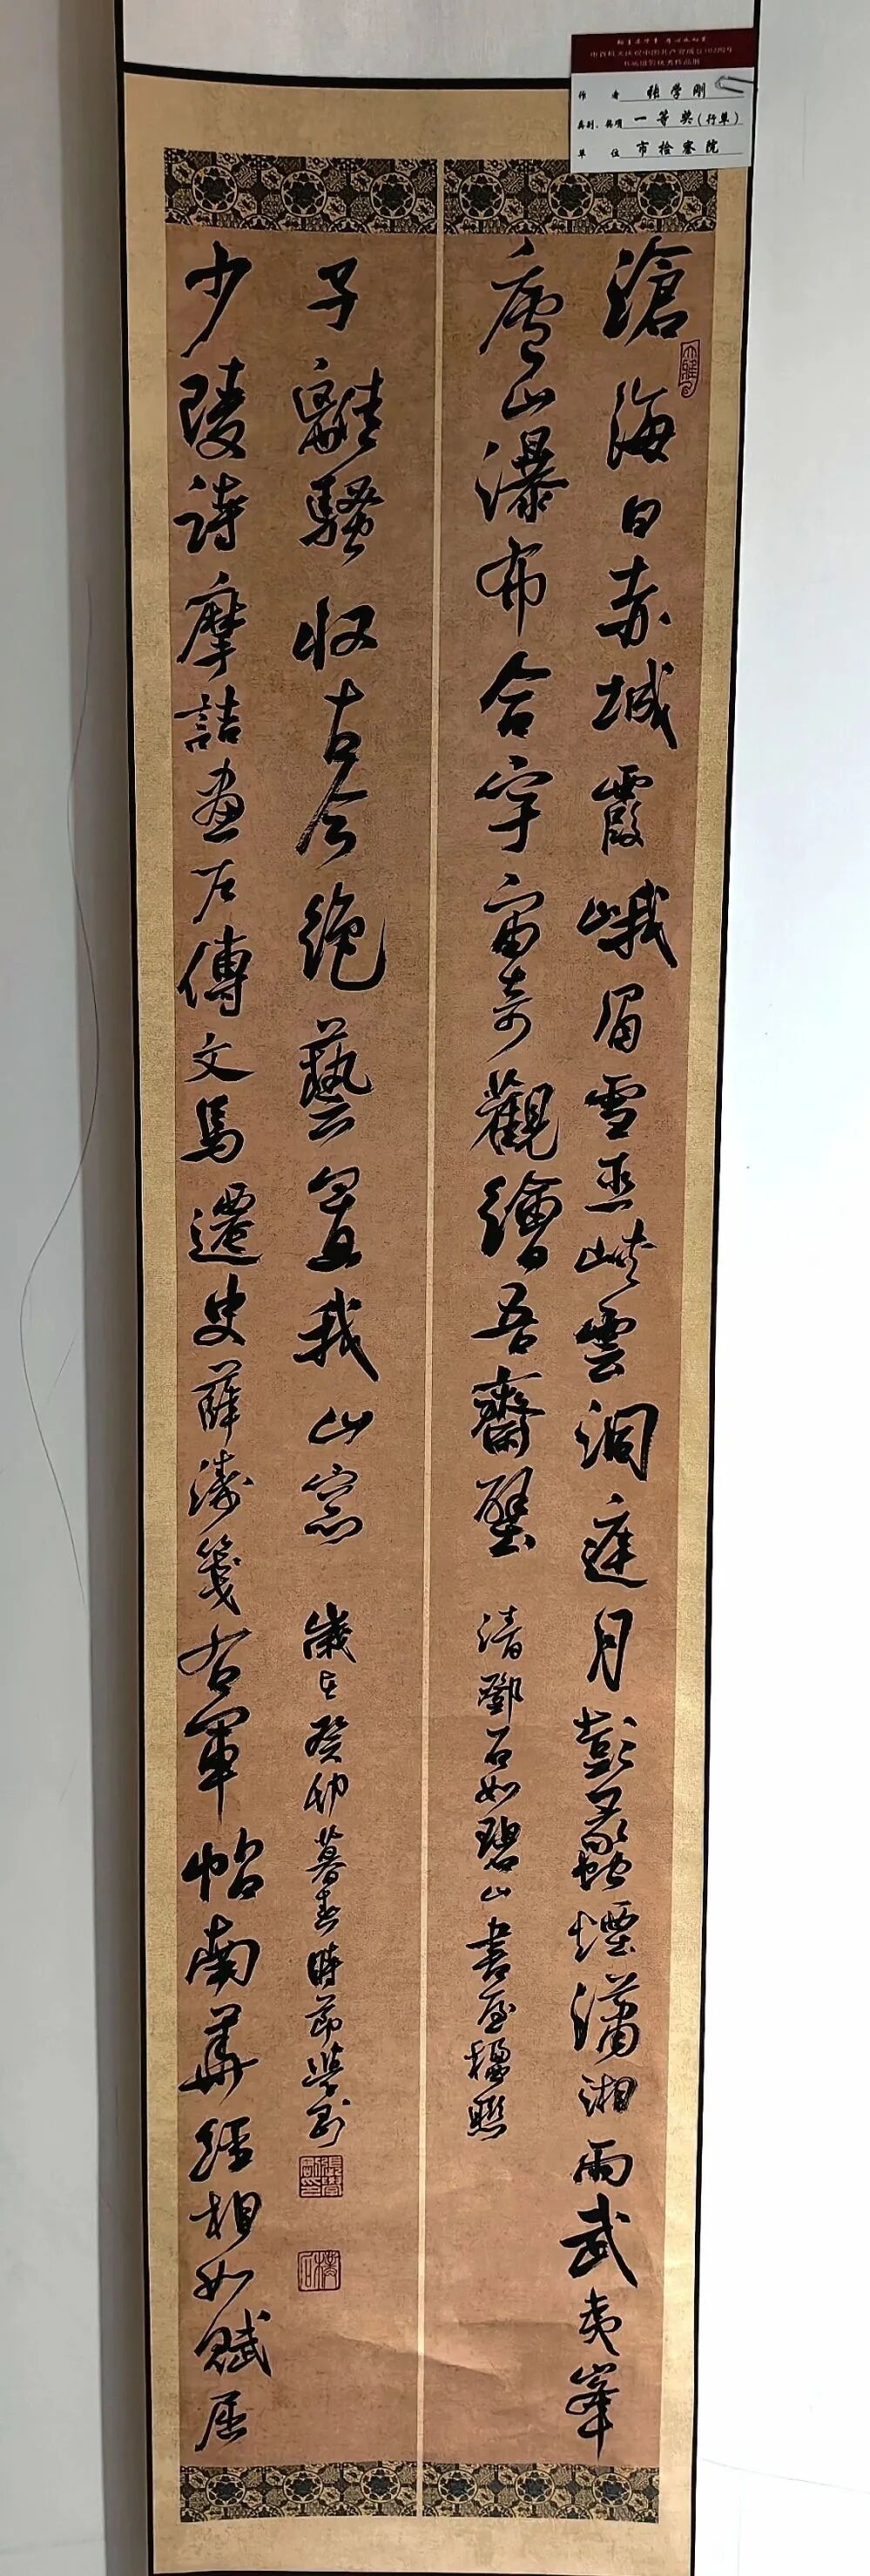 滄海日赤城霞峨眉雪巫峽雲洞庭月彭蠡煙瀟湘雨武夷峯
廬山瀑布合宇宙奇觀繪吾齋壁
清鄧石如碧山書屋楹聯
少陵詩摩詰畫左傳文馬遷史薛濤箋右軍帖南華經相如賦屈
子離騷收古今絕藝置我山窓
歲在癸卯暮春時節學剛
作者 張学刚
类别、奖项 一等奖(行草)
单位 市检察院